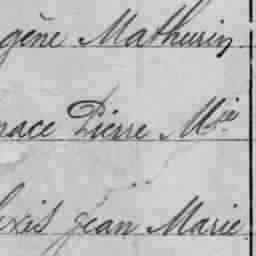 gène Mathurin
nace Pierre Mie
exis Jean Marie